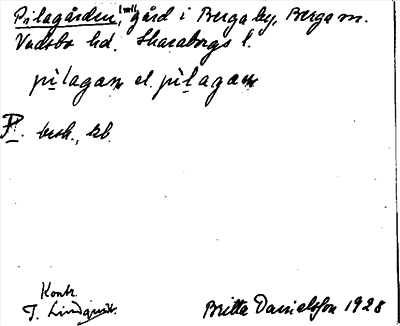 Pilagården, 1 mtl, gård i Berga by, Berga sn.
Vadsbo hd. Skaraborgs l.
pìlagaɳ el. pìlagaɳ
besk., kb.
Kontr.
T. Lindqvist.
Britta Danielsson 1928